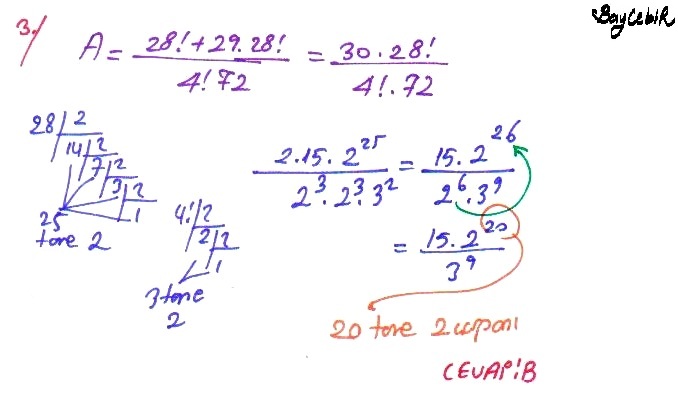 BayCebiR
3./
A = (28! + 29.28!) / (4! 72) = (30.28!) / (4!.72)
28 | 2
14 | 2
7 | 2
3 | 2
1
25
tane 2
4! | 2
2 | 2
1
3 tane
2
(2.15.2^25) / (2^3.2^3.3^2) = (15.2^26) / (2^6.3^9)
= (15.2^20) / 3^9
20 tane 2 çarpanı
CEVAP:B